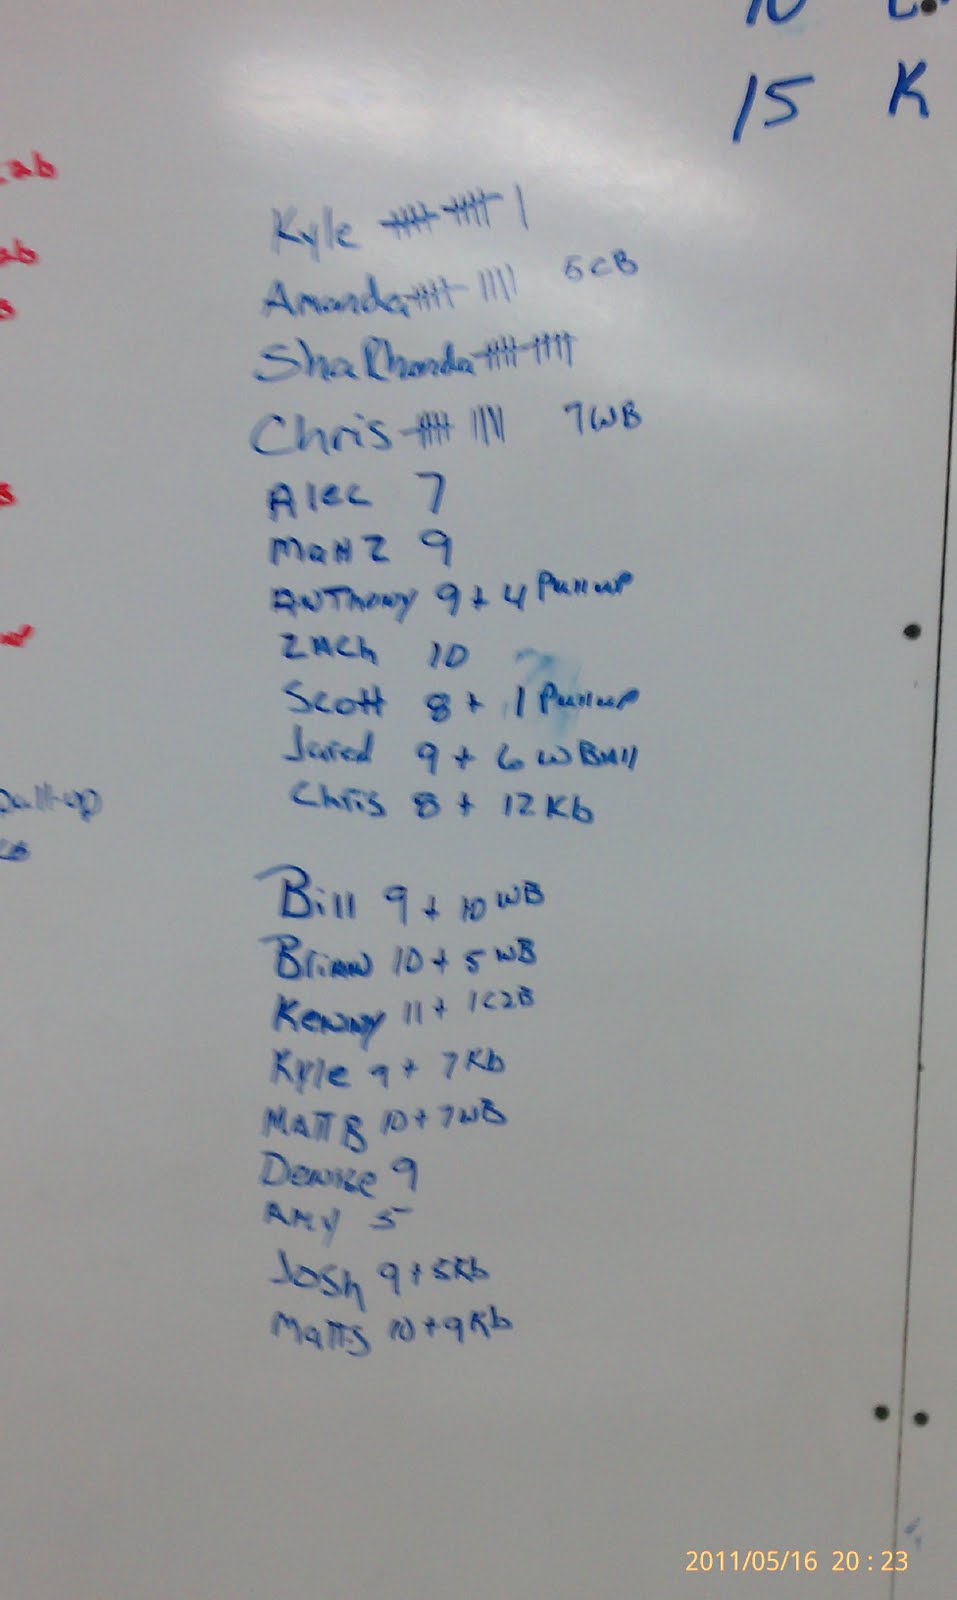 15 K
ab
ab
Kyle 卌 卌 |
Amanda 卌 |||| 5CB
ShaRhonda 卌 卌
Chris 卌 |||| 7WB
Alec 7
Matt Z 9
Anthony 9 + 4 Pullup
Zach 10
Scott 8 + 1 Pullup
Jared 9 + 6 W Ball
Chris 8 + 12 Kb
pull-up
Bill 9 + 10 WB
Brian 10 + 5 WB
Kenny 11 + 1 C2B
Kyle 9 + 7 Kb
Matt B 10 + 7 WB
Denise 9
Amy 5
Josh 9 + 5 Kb
Matt S 10 + 9 Kb
2011/05/16 20:23